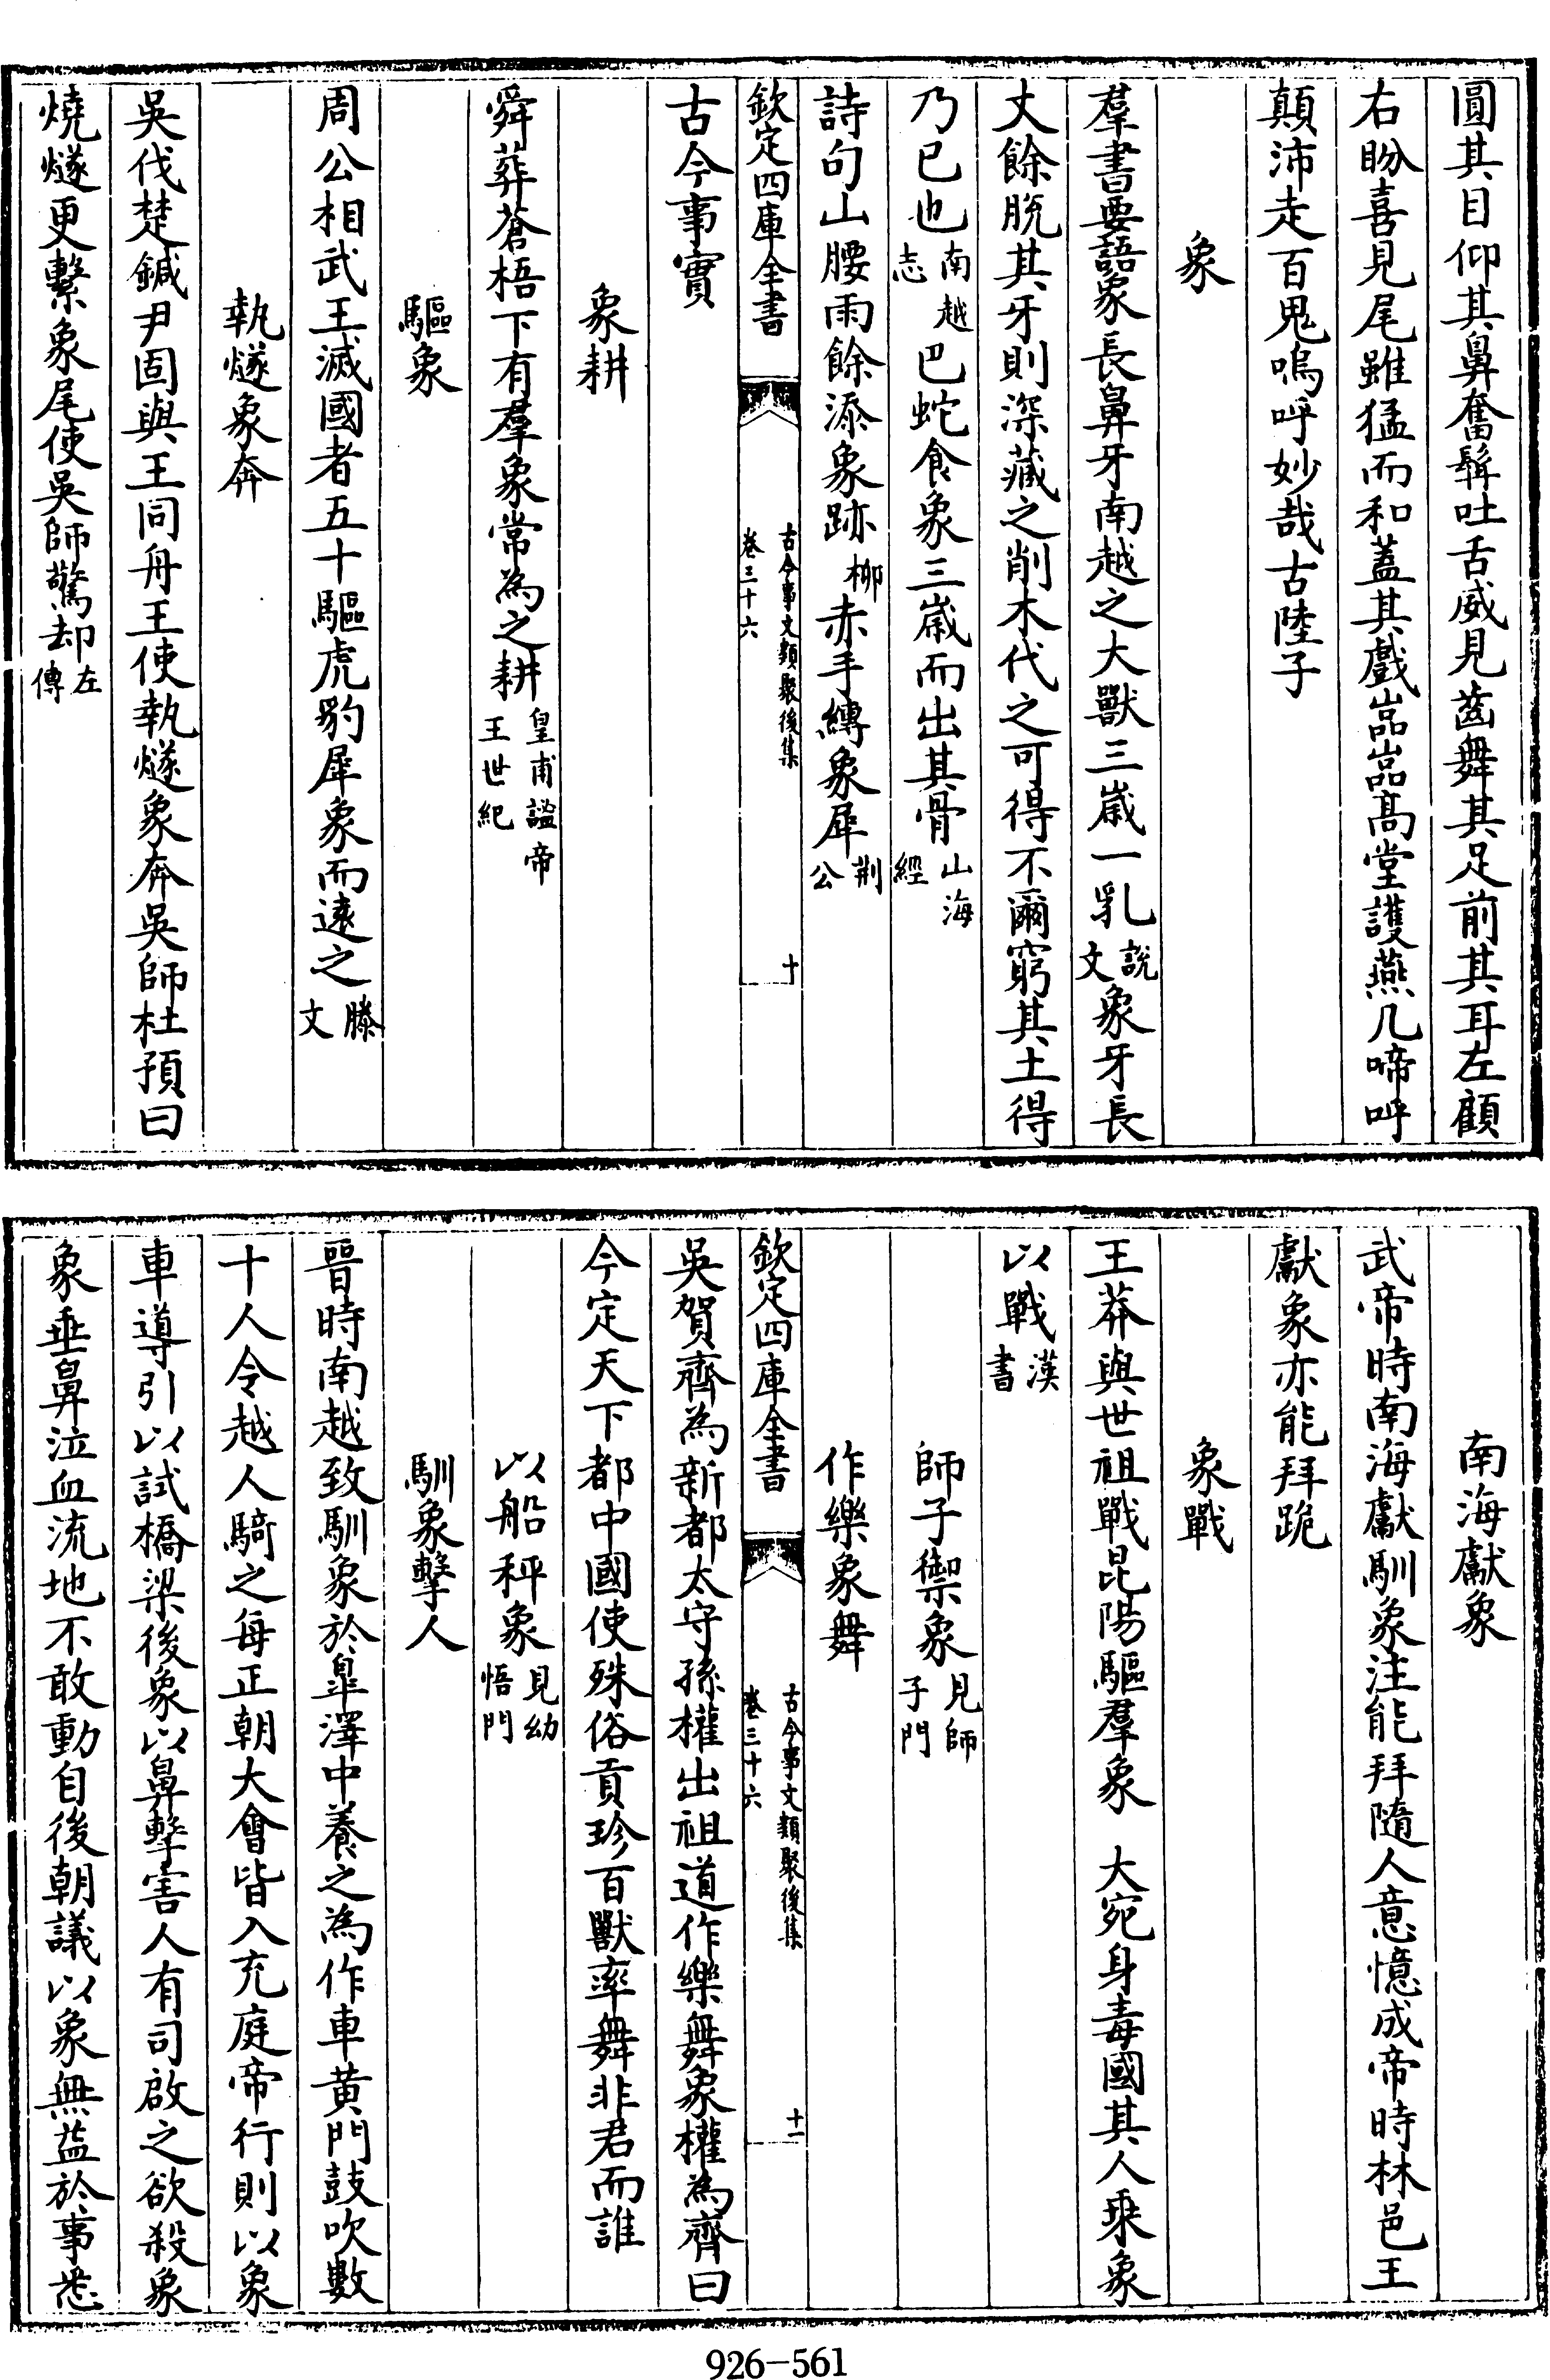 圓其目仰其鼻奮髯吐舌威見齒舞其足前其耳左顧
右盼喜見尾雖猛而和蓋其戲嵓嵓髙堂護燕几啼呼
顛沛走百鬼嗚呼妙哉古陸子
象
羣書要語象長鼻牙南越之大獸三嵗一乳說文象牙長
丈餘脫其牙則深藏之削木代之可得不爾窮其土得
乃已也南越志巴蛇食象三嵗而出其骨山海經
詩句山腰雨餘添象跡柳赤手縳象犀荆公
欽定四庫全書
古今事文類聚後集
卷三十六
十
古今事實
象耕
舜葬蒼梧下有羣象常為之耕皇甫謐帝王世紀
驅象
周公相武王滅國者五十驅虎豹犀象而逺之滕文
執燧象奔
吳伐楚鍼尹固與王同舟王使執燧象奔吳師杜預曰
燒燧更繫象尾使吳師驚却左傳
南海獻象
武帝時南海獻馴象注能拜隨人意憶成帝時林邑王
獻象亦能拜跪
象戰
王莽與世祖戰昆陽驅羣象 大宛身毒國其人乘象
以戰漢書
師子禦象見師子門
作樂象舞
欽定四庫全書
古今事文類聚後集
卷三十六
十一
吳賀齊為新都太守孫權出祖道作樂舞象權為齊曰
今定天下都中國使殊俗貢珍百獸率舞非君而誰
以船秤象見幼悟門
馴象擊人
晉時南越致馴象於臯澤中養之為作車黄門鼓吹數
十人令越人騎之每正朝大會皆入充庭帝行則以象
車導引以試橋梁後象以鼻擊害人有司啟之欲殺象
象垂鼻泣血流地不敢動自後朝議以象無益於事悉
926-561